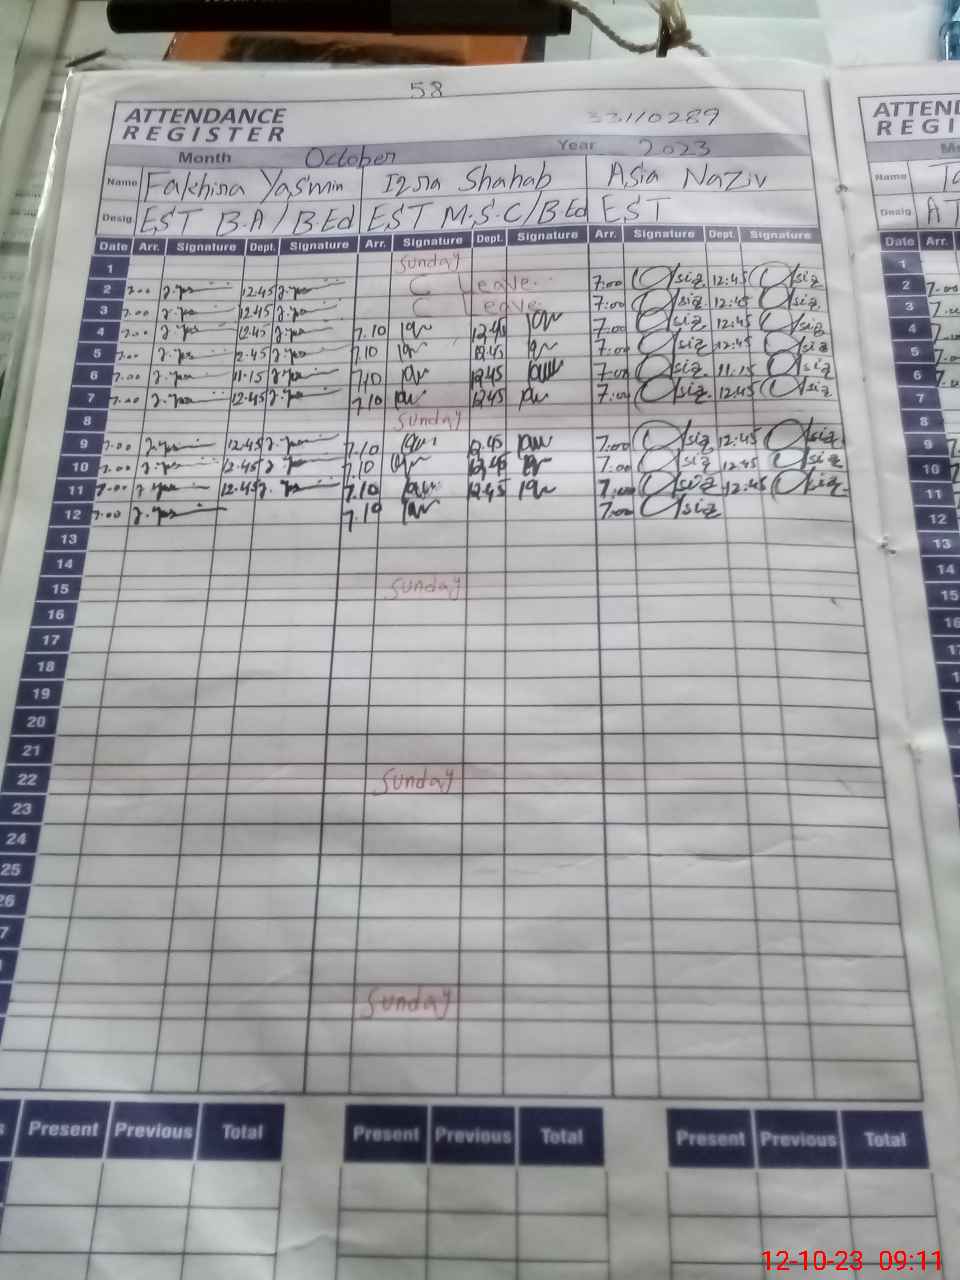 58
ATTENDANCE
REGISTER
33110289
Month October Year 2023
Name Fakhira Yasmin Iqra Shahab Asia Naziv
Desig EST B.A / B.Ed EST M.S.C / B.Ed EST
Date Arr. Signature Dept. Signature Arr. Signature Dept. Signature Arr. Signature Dept. Signature
1 Sunday
2 7.00 12.45 C Leave. 7:00 12:45
3 7.00 12.45 C Leave. 7:00 12:45
4 7.00 12.45 7.10 12.45 7:00 12:45
5 7.00 12.45 7.10 12.45 7:00 12:45
6 7.00 11.15 7.10 12.45 7:00 11.15
7 7.00 12.45 7.10 12.45 7:00 12:45
8 Sunday
9 7.00 12.45 7.10 12.45 7:00 12:45
10 7.00 12.45 7.10 12.45 7:00 12:45
11 7.00 12.45 7.10 12.45 7:00 12:45
12 7.00 7.10 7:00
13
14
15 Sunday
16
17
18
19
20
21
22 Sunday
23
24
25
26
7
Sunday
Present Previous Total Present Previous Total Present Previous Total
ATTEND
REGI
Name
Desig AT
Date Arr.
1
2 7.00
3
4
5
6
7
8
9
10
11
12
13
14
15
16
12-10-23 09:11